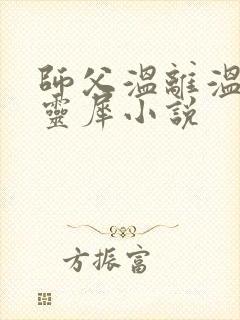 師父溫離溫
靈犀小說
方振富